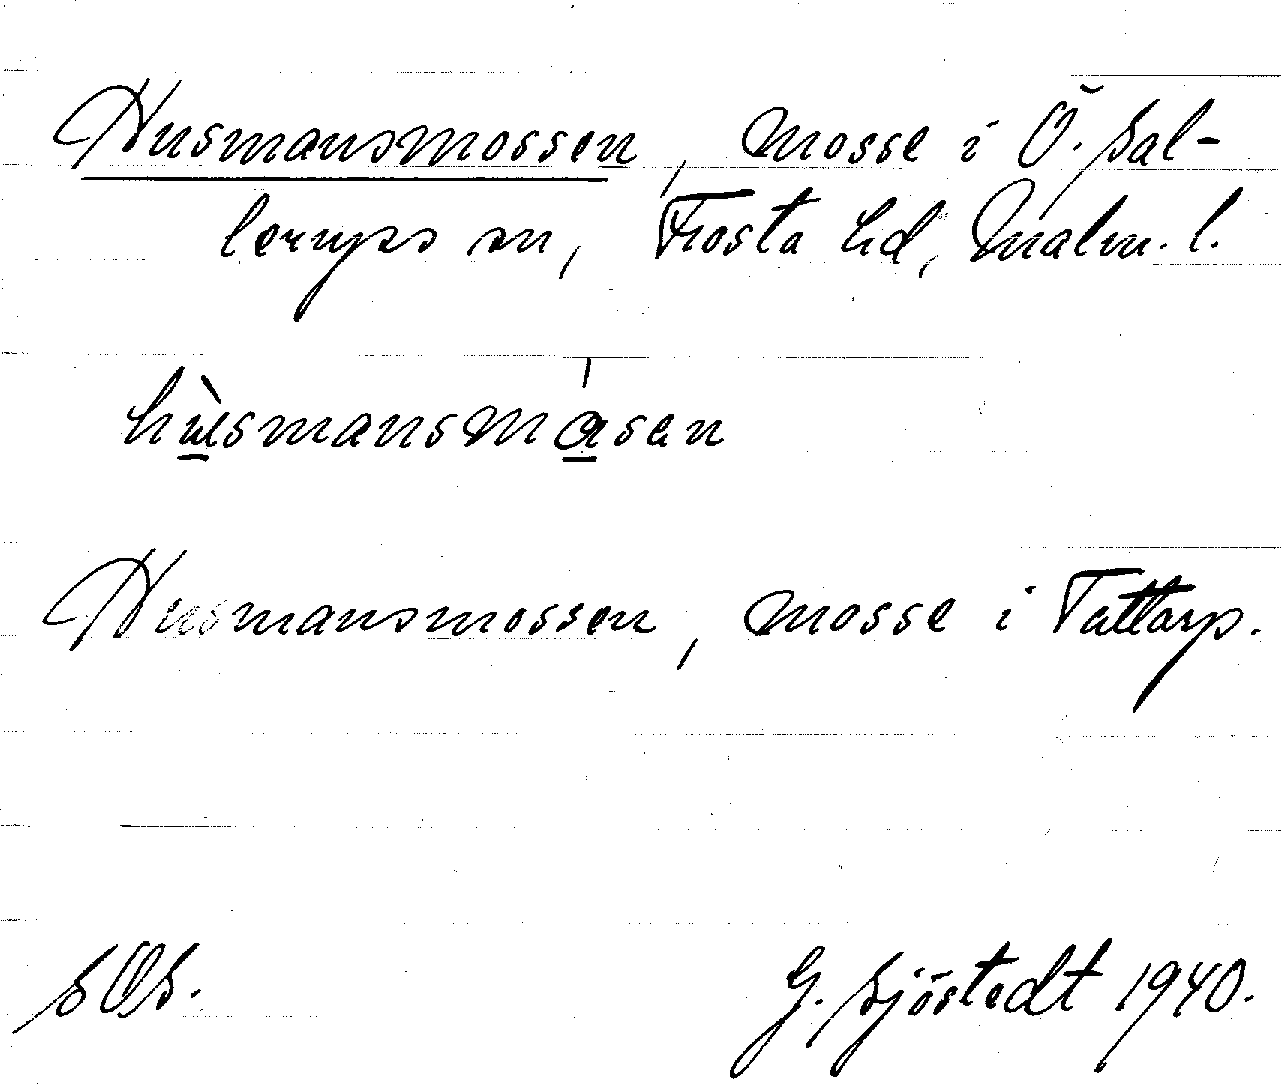 Husmansmossen, mosse i Ö. Sal-
lerups sn, Frosta hd, Malm. l.
hùsmansmåsen
Husmansmossen, mosse i Tattarp.
SOS.
G. Sjöstedt 1940.